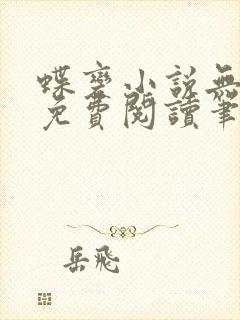 蝶变小説無
免費閲讀筆
岳飛